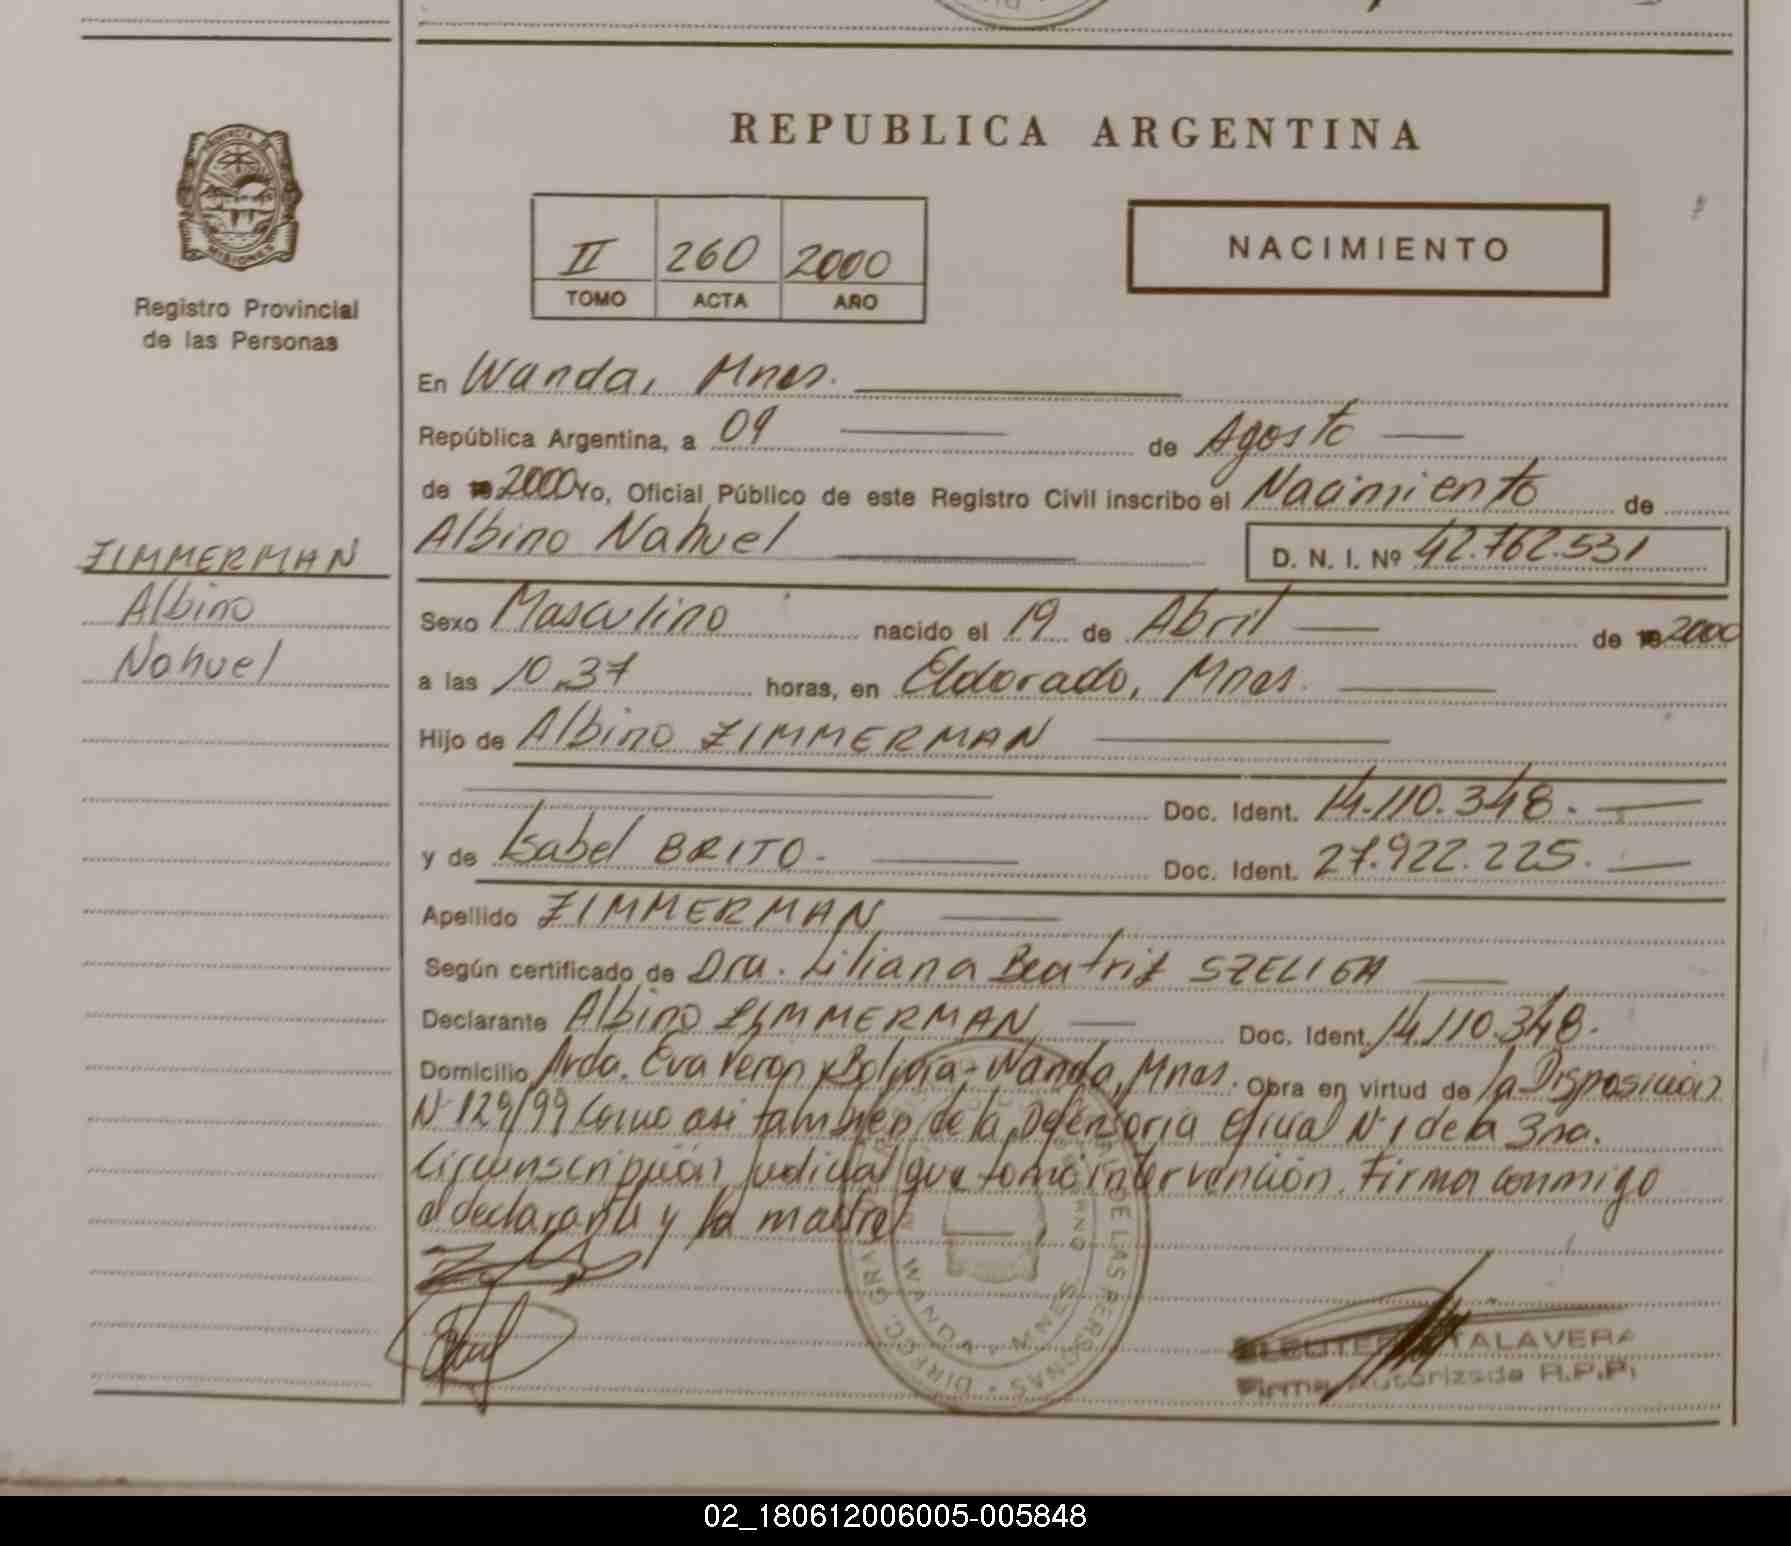 REPUBLICA ARGENTINA
PROVINCIA
MISIONES
Registro Provincial
de las Personas
II 260 2000
TOMO ACTA AÑO
NACIMIENTO
En Wanda, Mnes.
República Argentina, a 09 de Agosto
de 2000 Yo, Oficial Público de este Registro Civil inscribo el Nacimiento de
Albino Nahuel D. N. I. Nº 42.762.531
ZIMMERMAN
Albino
Nahuel
Sexo Masculino nacido el 19 de Abril de 2000
a las 10,37 horas, en Eldorado, Mnes.
Hijo de Albino ZIMMERMAN
Doc. Ident. 14.110.348.
y de Isabel BRITO. Doc. Ident. 27.922.225.
Apellido ZIMMERMAN
Según certificado de Dra. Liliana Beatriz SZELIGA
Declarante Albino ZIMMERMAN Doc. Ident. 14.110.348.
Domicilio Avda. Eva Peron y Bolivia, Wanda, Mnes. Obra en virtud de la Disposición
Nº 129/99 Como asi tambien de la Defensoria Oficial Nº 1 de la 3ra.
Circunscripción judicial que tomo intervención. Firma conmigo
el declarante y la madre
WANDA - MNES
DE LAS PERSONAS
DIRECC. GRAL
TALAVERA
Firma Autorizada R.P.P.
02_180612006005-005848